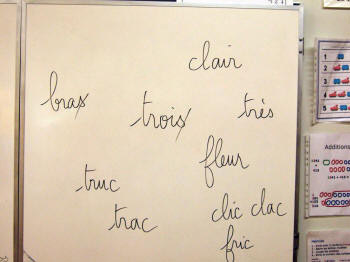 clair
bras
trois
très
fleur
truc
trac
clic clac
fric
1
2
3
4
5
Additions